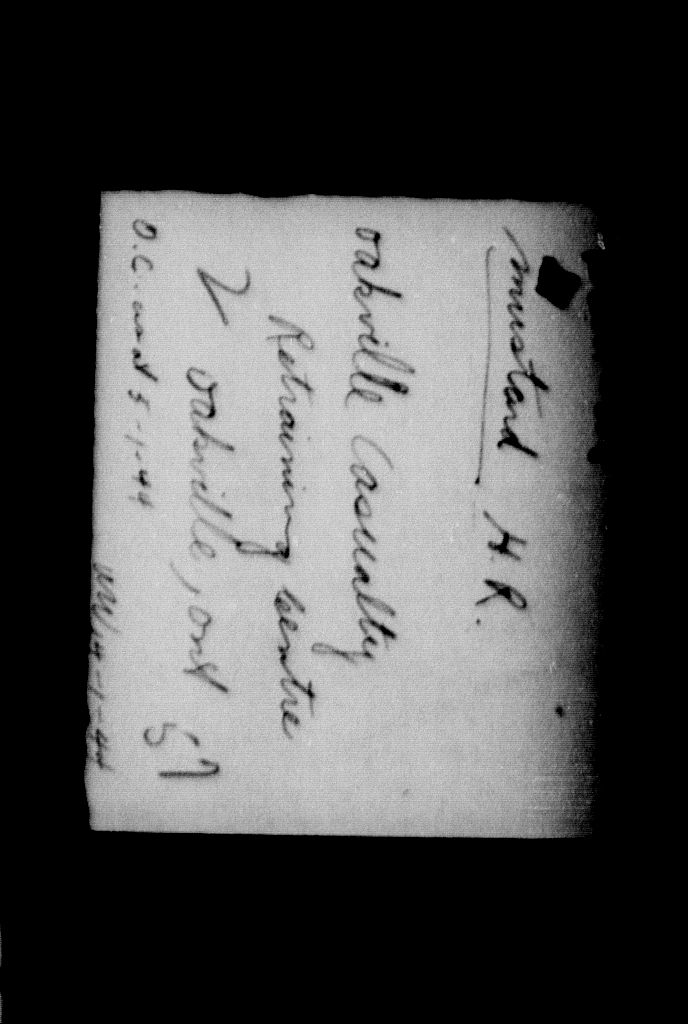 Mustard H.R.
Oakville Casualty
Retraining Centre
Oakville, Ont
O.C. 5-1-44
14-1-44